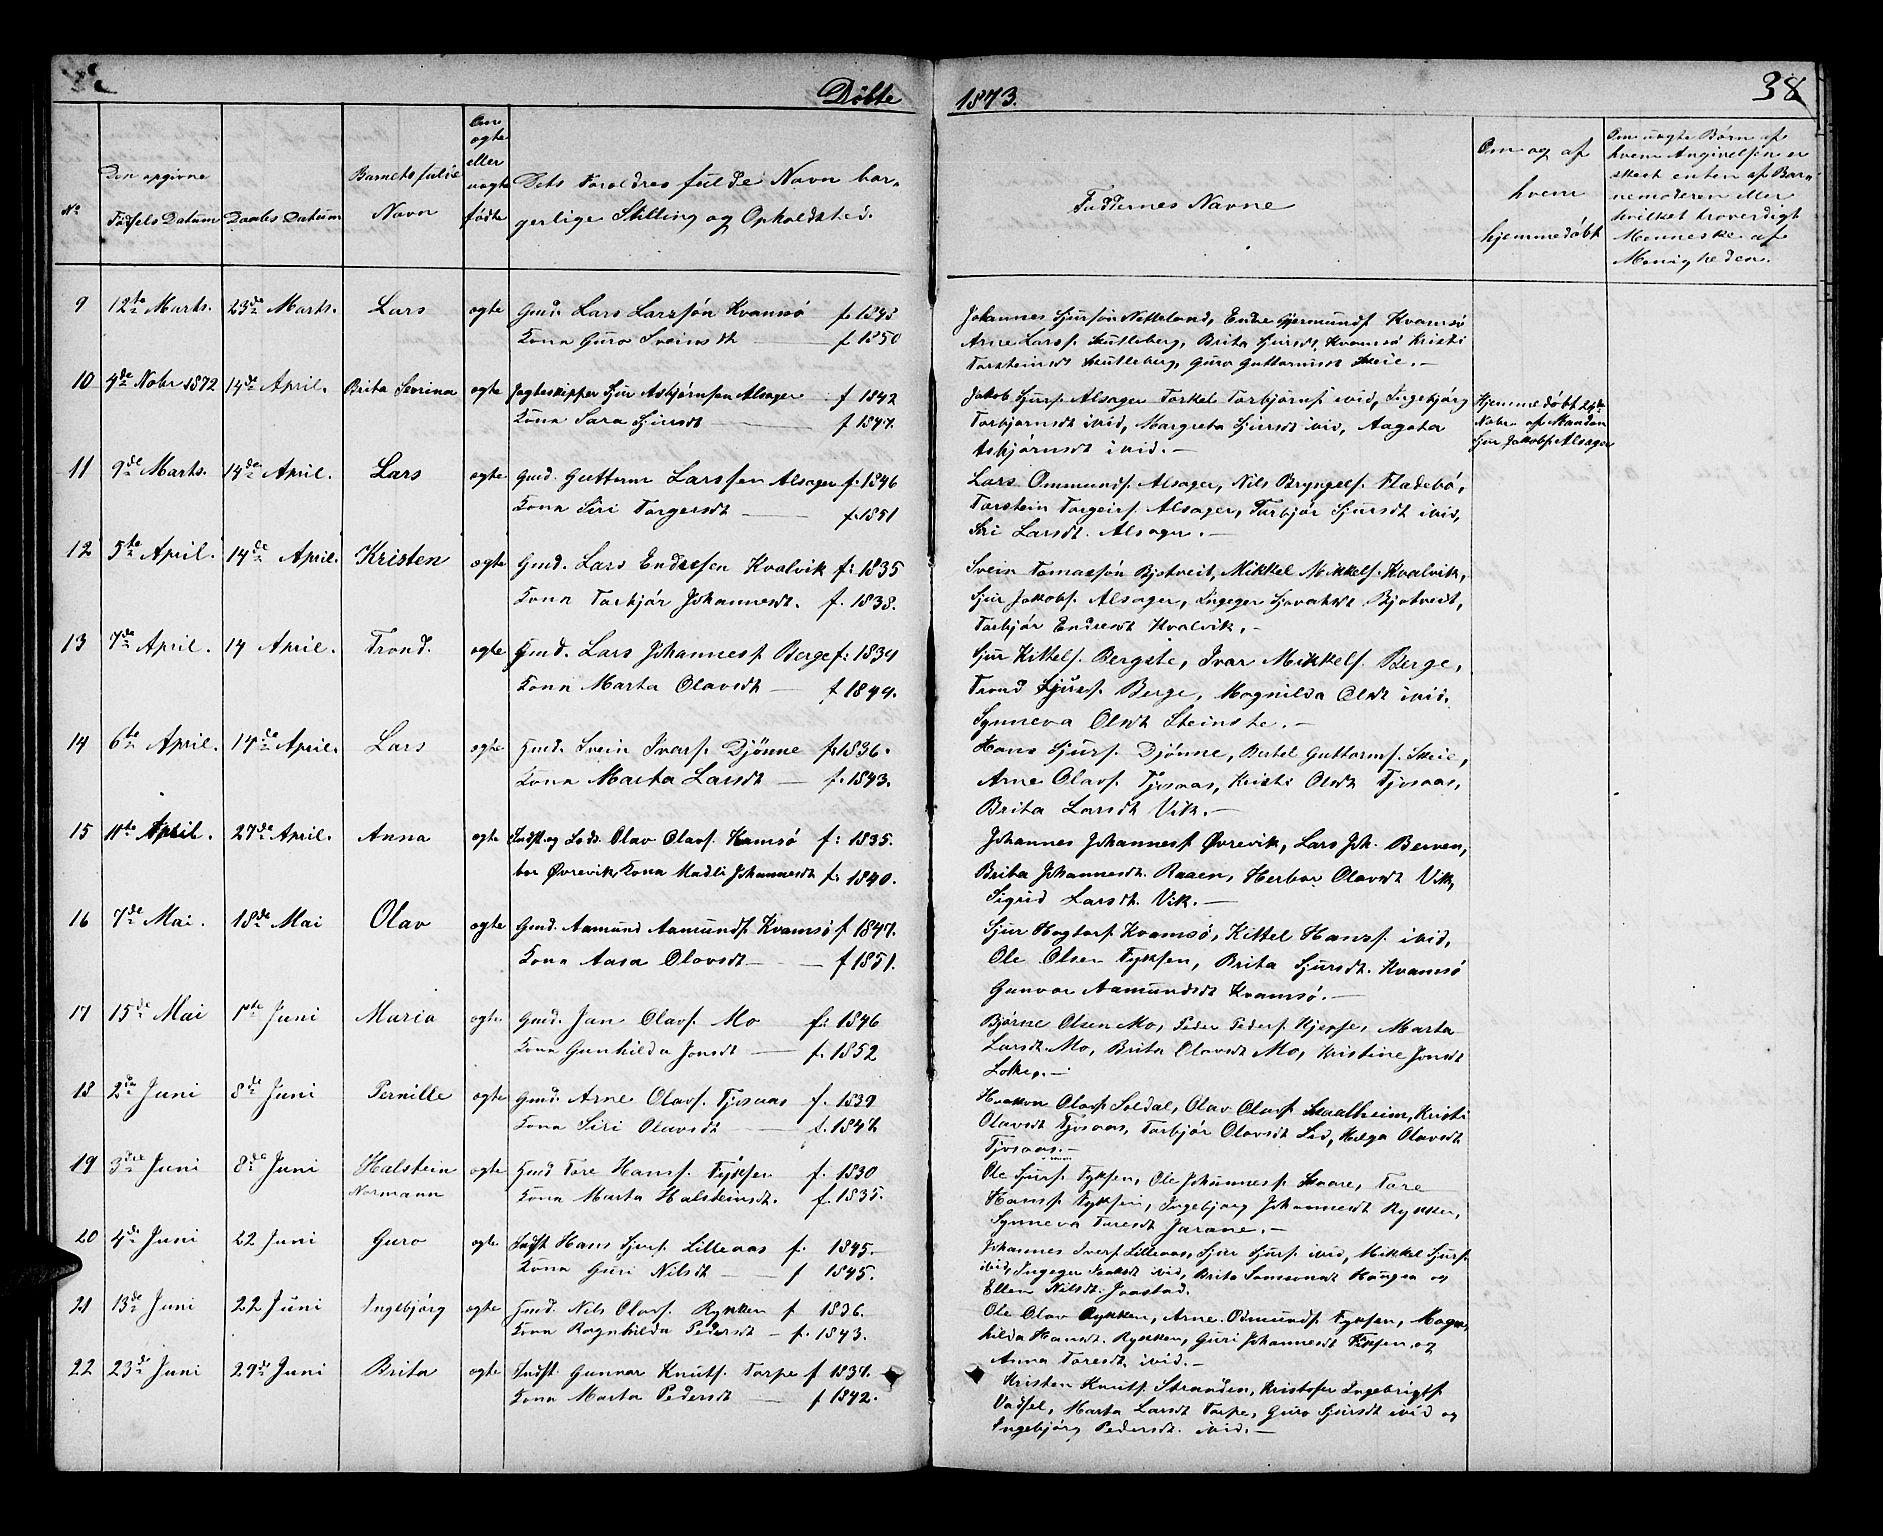 Döbte 1873. 38
No
Den opgivne
Födsels Datum
Daabs Datum
Barnets fulde
Navn
Om
ægte
eller
uægte
födte
Dets Foreldres fulde Navn bor-
gerlige Stilling og Opholdsted.
Faddernes Navne
Om og af
hvem
hjemmedöbt
Om uægte Börn af
hvem Angivelsen er
skeet enten af Bar-
nemoderen eller
hvilket troverdigt
Menneske af
Menigheden.
9 12te Marts. 23de Marts. Lars ægte Gmd. Lars Larssön Kvamsö f. 1845
Kona Guro Sveinsdt f 1850
Johannes Sjursön Netteland, Endre Gjermundf Kvamsö
Arne Larsf. Hutleberg, Brita Sjursdt, Kvamsö Kristi
Torsteinsdt Hutleberg, Guro Guttormsdt Skeie.
10 4de Nobr 1872 14de April. Brita Sevrina ægte Jagteskipper Sjur Asbjörnsen Alsager f 1842
Kona Sara Sjursdt f 1847.
Jakob Sjursf Alsager Torkel Torbjörnsf ivid, Ingebjörg
Torbjörnsdt ivid, Margreta Sjursdt ivid, Aagata
Asbjörnsdt ivid.
Hjemmedöbt 24de
Nobr af Manden
Sjur Jakobf. Alsager
11 9de Marts. 14de April. Lars ægte Gmd. Guttorm Larssen Alsager f. 1846
Kona Siri Torgersdt f. 1851
Lars Ommundf. Alsager, Nils Bryngelf. Fladebö,
Torstein Torgeirf. Alsager, Torbjör Sjursdt ivid,
Siri Larsdt. Alsager.
12 5te April. 14de April. Kristen ægte Gmd. Lars Endressen Kvalvik f: 1835
Kona Torbjör Johannesdt. f. 1838.
Svein Tomassön Bjotveit, Mikkel Mikkelf. Kvalvik,
Sjur Jakobf. Alsager, Ingeger Sjovatsdt. Bjotveit,
Torbjör Endresdt Kvalvik.
13 7de April. 14 April. Trond. ægte Gmd. Lars Johannesf. Berge f: 1834
Kona Marta Olavsdt f 1849.
Sjur Kittelf. Bergste, Ivar Mikkelf. Berge,
Trond Sjursf. Berge, Magnilda Olsdt ivid.
Synneva Olsdt Steinste.
14 6te April. 14de April. Lars ægte Gmd. Svein Ivarf. Djönne f. 1836.
Kona Marta Larsdt f. 1843.
Hans Sjurf. Djönne, Bertel Guttormf. Skeie,
Arne Olavf. Tjosaas, Kristi Olsdt Tjosaas,
Brita Larsdt Vik.
15 11te April. 27de April. Anna ægte Indst. og Lods. Olav Olavf. Kvamsö f: 1835.
bor Övrevik, Kona Madli Johannesdt f. 1840.
Johannes Johannesf Övrevik, Lars Joh. Berven,
Brita Johannesdt. Raaen, Herbor Olavsdt Vik,
Sigrid Larsdt. Vik.
16 7de Mai. 18de Mai Olav ægte Gmd. Aamund Aamundf Kvamsö f 1847.
Kona Aasa Olavsdt f 1851.
Sjur Hogtorf Kvamsö, Kittel Hansf. ivid,
Ole Olsen Fyksen, Brita Sjursdt. Kvamsö
Gunvor Aamundsdt Kvamsö.
17 15de Mai 1ste Juni Maria ægte Gmd. Jan Olavf. Mo f: 1846
Kona Gunhilda Jonsdt f. 1852
Björne Olsen Mo, Peder Pedersf. Hjepse, Marta
Larsdt. Mo, Brita Olavsdt Mo, Kristine Jonsdt
Lokke.
18 2de Juni 8de Juni Pernille ægte Gmd. Arne Olavf. Tjosaas f. 1839
Kona Siri Olavsdt f. 1847
Haakon Olavf. Soldal, Olav Olavf. Skaalheim, Kristi
Olavsdt Tjosaas, Torbjör Olavsdt Lid, Helga Olavsdt
Tjosaas.
19 3die Juni 8de Juni Halstein
Normann ægte Gmd. Tore Hansf. Fyksen f. 1830
Kona Marta Halsteinsdt. f. 1835.
Ole Sjurf. Fyksen, Ole Johannesf Skaare, Tore
Hansf. Fyksen, Ingebjorg Johannesdt Rykken,
Synneva Toresdt Jarane.
20 4de Juni 22 Juni Guro ægte Indst Hans Sjurf. Lilleaas f. 1845.
Kona Guri Nilsdt f 1845.
Johannes Iverf Lilleaas, Sjur Sjurf. ivid, Mikkel Sjurf
ivid, Ingeger Isaksdt ivid, Brita Samsonsdt Haugen og
Ellen Nilsdt. Jaastad.
21 13de Juni 22 Juni Ingebjörg ægte Gmd. Nils Olavf. Rykken f 1836.
Kona Ragnhilda Pedersdt f. 1843.
Ole Olav Rykken, Arne Odmundf Fyksen, Magn-
hilda Hansdt. Rykken, Guri Johannesdt Fyksen, og
Anna Toresdt ivid.
22 23de Juni 29de Juni Brita ægte Indst. Gunnar Knutf. Torpe f 1834.
Kona Marta Pedersdt f 1842.
Kristen Knutf. Stranden, Kristofer Ingebrigtf
Vadsel, Marta Larsdt Torpe, Guro Sjursdt ivid og
Ingebjörg Pedersdt. ivid.